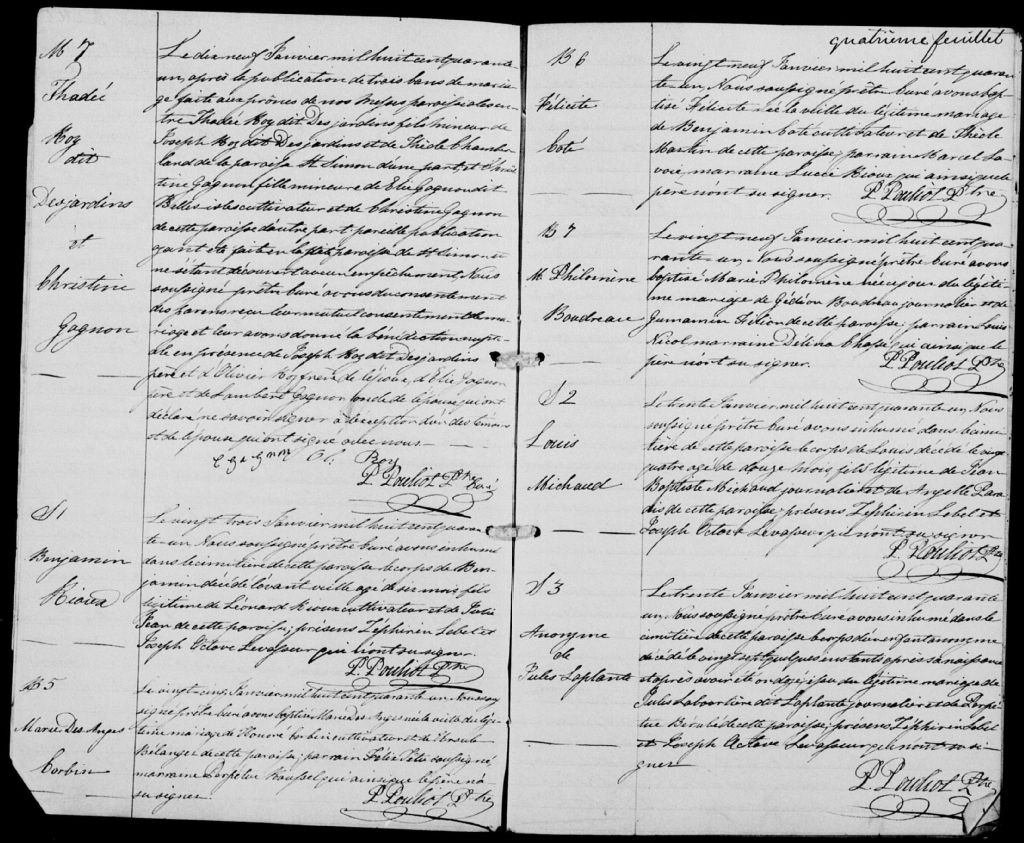 M 7
Thadée
Roy
dit
Desjardins
et
Christine
Gagnon
Le dix neuf Janvier mil huit cent quarante
un, après la publication de trois bans de maria
ge faite aux prônes de nos Messes paroissiales en
tre Thadée Roy dit Desjardins fils mineur de
Joseph Roy dit Desjardins et de Thècle Chamber
land de la paroisse St Simon d'une part, et Chris
tine Gagnon fille mineure de Elie Gagnon dit
Belles isles cultivateur et de Christine Gagnon
de cette paroisse d'autre part, pareille publication
ayant été faite en la paroisse de St Simon et
ne s'étant découvert aucun empêchement, Nous
soussigné prêtre curé avons du consentement
des parens reçu leur mutuel consentement de ma
riage et leur avons donné la bénédiction nupti
ale en présence de Joseph Roy dit Desjardins
père et d'Olivier Roy frère de l'époux, d'Elie Gagnon
père et de Lambert Gagnon oncle de l'épouse qui ont
déclaré ne savoir signer à l'exception d'un des témoins
et de l'époux qui ont signé avec nous
Roy
P. Pouliot Ptre Curé
S 1
Benjamin
Rioux
Le vingt trois Janvier mil huit cent quaran
te un Nous soussigné prêtre curé avons inhumé
dans le cimetière de cette paroisse le corps de Ben
jamin décédé l'avant veille agé de six mois fils
légitime de Léonard Rioux cultivateur et de Julie
Jean de cette paroisse; présens Zéphirin Lebel et
Joseph Octave Levasseur qui n'ont su signer.
P. Pouliot Ptre
B 5
Marie Des Anges
Corbin
Le vingt cinq Janvier mil huit cent quarante un Nous sous
signé prêtre curé avons baptisé Marie Des Anges née la veille du légi
time mariage de Honoré Corbin cultivateur et de Ursule
Bélanger de cette paroisse; parrain Félix Têtu soussigné
marraine Perpétue Roussel qui ainsi que le père n'a
su signer.
P. Pouliot Ptre
quatrième feuillet
B 6
Félicité
Coté
Le vingt neuf Janvier mil huit cent quaran
te un Nous soussigné prêtre curé avons bap
tisé Félicité née la veille du légitime mariage
de Benjamin Coté cultivateur et de Thècle
Martin de cette paroisse; parrain Marcel La
voie, marraine Luce Rioux qui ainsi que le
père n'ont su signer.
P. Pouliot Ptre
B 7
M. Philomène
Boudreau
Le vingt neuf Janvier mil huit cent qua
rante un, Nous soussigné prêtre curé avons
baptisé Marie Philomène née ce jour du légiti
me mariage de Gédéon Boudreau journalier et de
Filion de cette paroisse; parrain Louis
Nicol marraine Délina Chassé qui ainsi que le
père n'ont su signer.
P. Pouliot Ptre
S 2
Louis
Michaud
Le trente Janvier mil huit cent quarante un, Nous
soussigné prêtre curé avons inhumé dans le cime
tière de cette paroisse le corps de Louis décédé le vingt
quatre agé de douze mois fils légitime de Jean
Baptiste Michaud journalier et de Angelle Para
dis de cette paroisse; présens Zéphirin Lebel et
Joseph Octave Levasseur qui n'ont su signer
P. Pouliot Ptre
S 3
Anonyme
de
Jules Laplante
Le trente Janvier mil huit cent quarante
un Nous soussigné prêtre curé avons inhumé dans le
cimetière de cette paroisse le corps d'un enfant anonyme
décédé le vingt sept quelques instants après sa naissance
et après avoir été ondoyé issu du légitime mariage de
Jules Labourlière dit Laplante journalier et de Perpé
tue Bérubé de cette paroisse; présens Zéphirin Lebel
et Joseph Octave Levasseur qui n'ont su si
gner
P. Pouliot Ptre